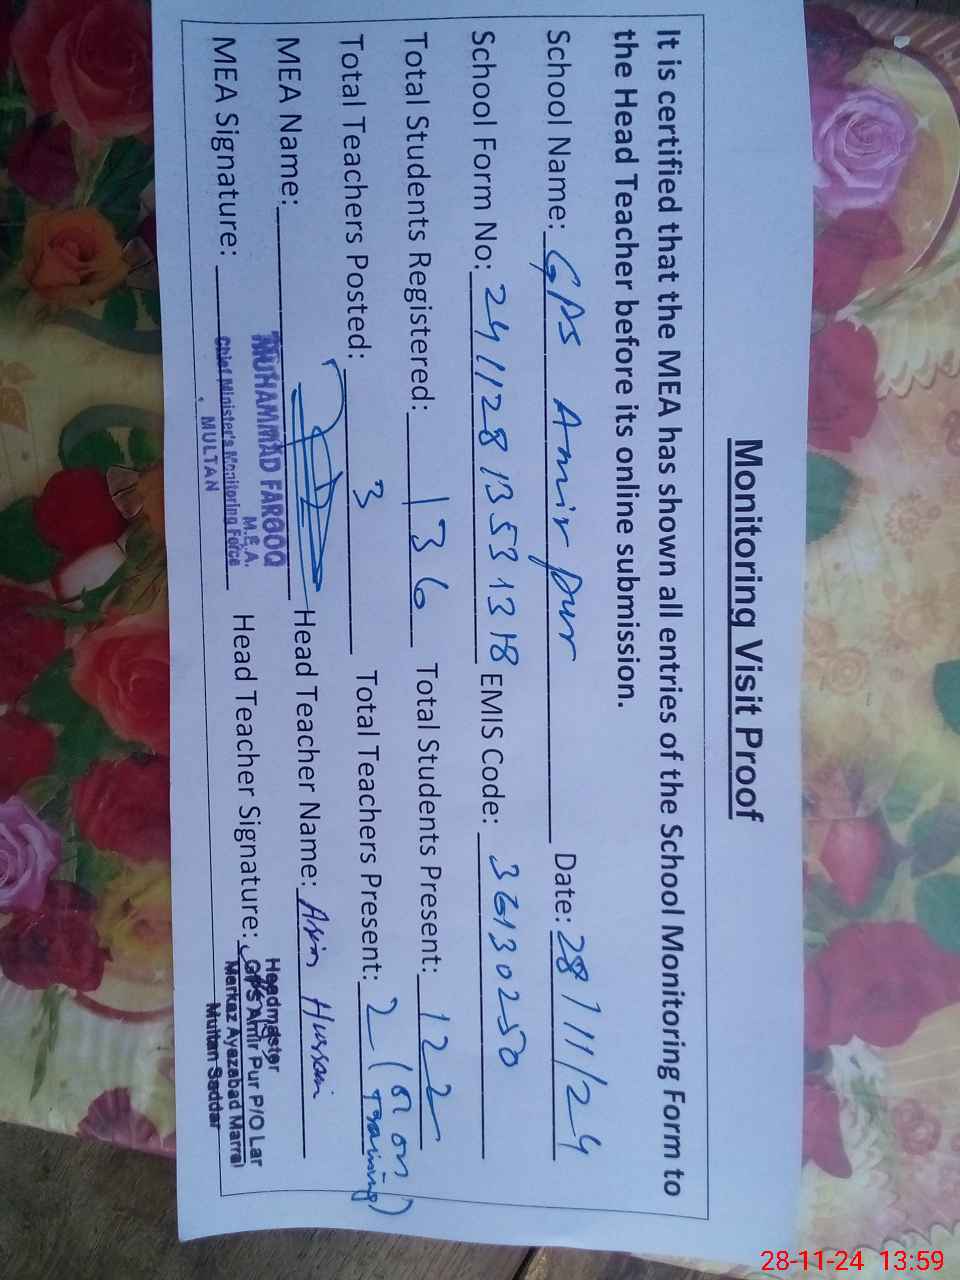 Monitoring Visit Proof
It is certified that the MEA has shown all entries of the School Monitoring Form to
the Head Teacher before its online submission.
School Name: GPS Amir pur Date: 28/11/24
School Form No: EMIS Code: 36130250
Total Students Registered: 136 Total Students Present: 122
Total Teachers Posted: 3 Total Teachers Present: 2 (01 on Training)
MEA Name: Head Teacher Name: Asim Hussain
MUHAMMAD FAROOQ
M.E.A.
Chief Minister's Monitoring Force
MULTAN
MEA Signature: Head Teacher Signature:
Headmaster
GPS Amir Pur P/O Lar
Markaz Ayazabad Marral
Multan Saddar
28-11-24 13:59